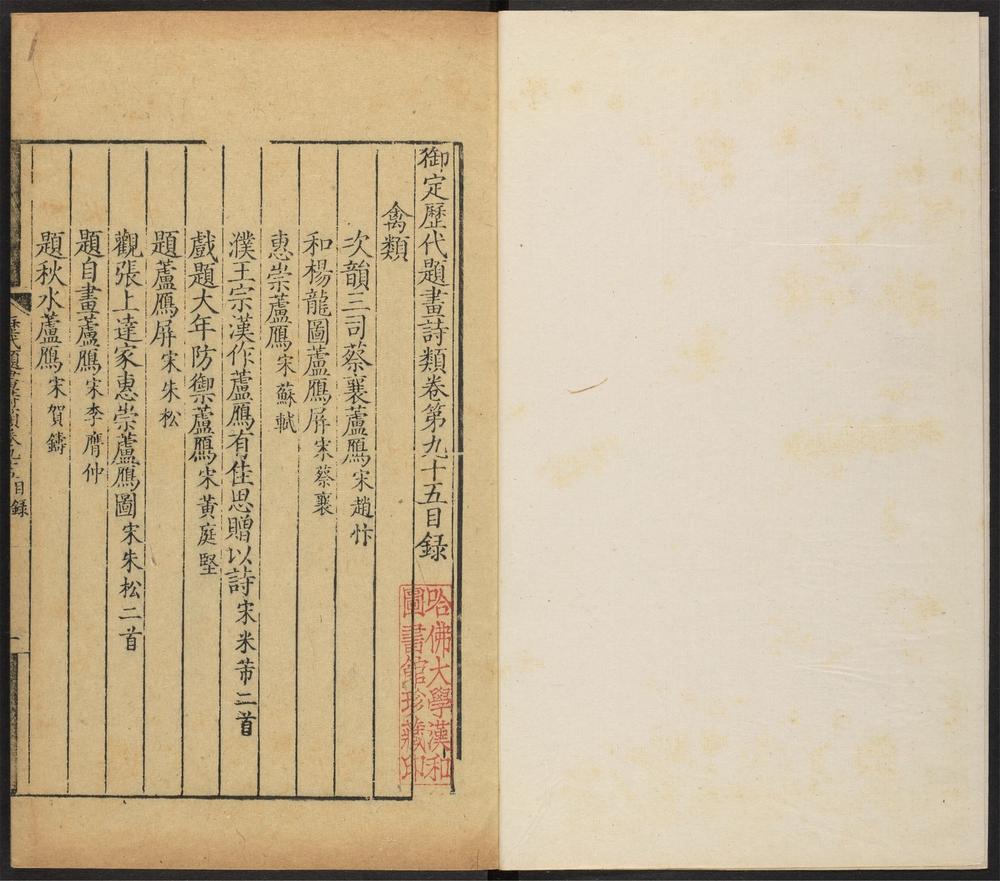 御定歷代題畫詩類卷第九十五目録
禽類
次韻三司蔡襄蘆鴈宋趙忭
和楊龍圖蘆鴈屏宋蔡襄
惠崇蘆鴈宋蘇軾
濮王宗漢作蘆鴈有佳思贈以詩宋米芾二首
戲題大年防禦蘆鴈宋黃庭堅
題蘆鴈屏宋朱松
觀張上達家惠崇蘆鴈圖宋朱松二首
題自畫蘆鴈宋李膺仲
題秋水蘆鴈宋賀鑄
歷代題畫詩類卷九十五目録
一
哈佛大學漢和
圖書館珍藏印